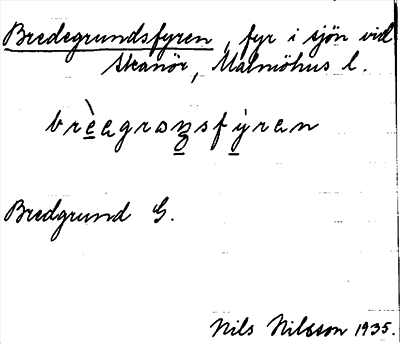 Bredegrundsfyren, fyr i sjön vid
Skanör, Malmöhus l.
brèeagronsfyran
Bredgrund G.
Nils Nilsson 1935.